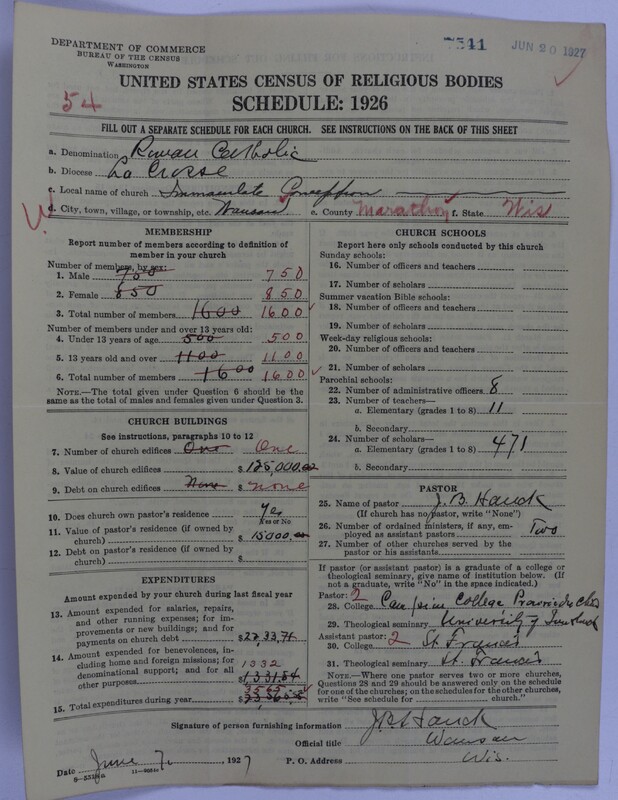 DEPARTMENT OF COMMERCE
BUREAU OF THE CENSUS
WASHINGTON
7541
JUN 20 1927
UNITED STATES CENSUS OF RELIGIOUS BODIES
SCHEDULE: 1926
54
FILL OUT A SEPARATE SCHEDULE FOR EACH CHURCH. SEE INSTRUCTIONS ON THE BACK OF THIS SHEET
a. Denomination Roman Catholic
b. Diocese La Crosse
c. Local name of church Immaculate Conception
d. City, town, village, or township, etc. Wausau e. County Marathon f. State Wis
MEMBERSHIP
Report number of members according to definition of
member in your church
Number of members, by sex:
1. Male 750 750
2. Female 850 850
3. Total number of members 1600 1600
Number of members under and over 13 years old:
4. Under 13 years of age 500 500
5. 13 years old and over 1100 1100
6. Total number of members 1600 1600
NOTE.—The total given under Question 6 should be
the same as the total of males and females given under Question 3.
CHURCH BUILDINGS
See instructions, paragraphs 10 to 12
7. Number of church edifices One One
8. Value of church edifices $125,000.00
9. Debt on church edifices None $ none
10. Does church own pastor's residence? Yes
Yes or No
11. Value of pastor's residence (if owned by
church) $ 15000.00
12. Debt on pastor's residence (if owned by
church) $
EXPENDITURES
Amount expended by your church during last fiscal year
13. Amount expended for salaries, repairs,
and other running expenses; for im-
provements or new buildings; and for
payments on church debt
14. Amount expended for benevolences, in-
cluding home and foreign missions; for
denominational support; and for all
other purposes 1332
$1331.84
15. Total expenditures during year $
CHURCH SCHOOLS
Report here only schools conducted by this church
Sunday schools:
16. Number of officers and teachers
17. Number of scholars
Summer vacation Bible schools:
18. Number of officers and teachers
19. Number of scholars
Week-day religious schools:
20. Number of officers and teachers
21. Number of scholars
Parochial schools:
22. Number of administrative officers 8
23. Number of teachers—
a. Elementary (grades 1 to 8) 11
b. Secondary
24. Number of scholars—
a. Elementary (grades 1 to 8) 471
b. Secondary
PASTOR
25. Name of pastor J. B. Hauck
(If church has no pastor, write "None")
26. Number of ordained ministers, if any, em-
ployed as assistant pastors Two
27. Number of other churches served by the
pastor or his assistants
If pastor (or assistant pastor) is a graduate of a college or
theological seminary, give name of institution below. (If
not a graduate, write "No" in the space indicated.)
Pastor: 2
28. College College
29. Theological seminary University of Innsbruck
Assistant pastor: 2
30. College St Francis
31. Theological seminary St. Francis
NOTE.—Where one pastor serves two or more churches,
Questions 28 and 29 should be answered only on the schedule
for one of the churches; on the schedules for the other churches,
write "See schedule for church."
Signature of person furnishing information J. B. Hauck
Official title Wausau
Date June 7, 1927 P. O. Address Wis.